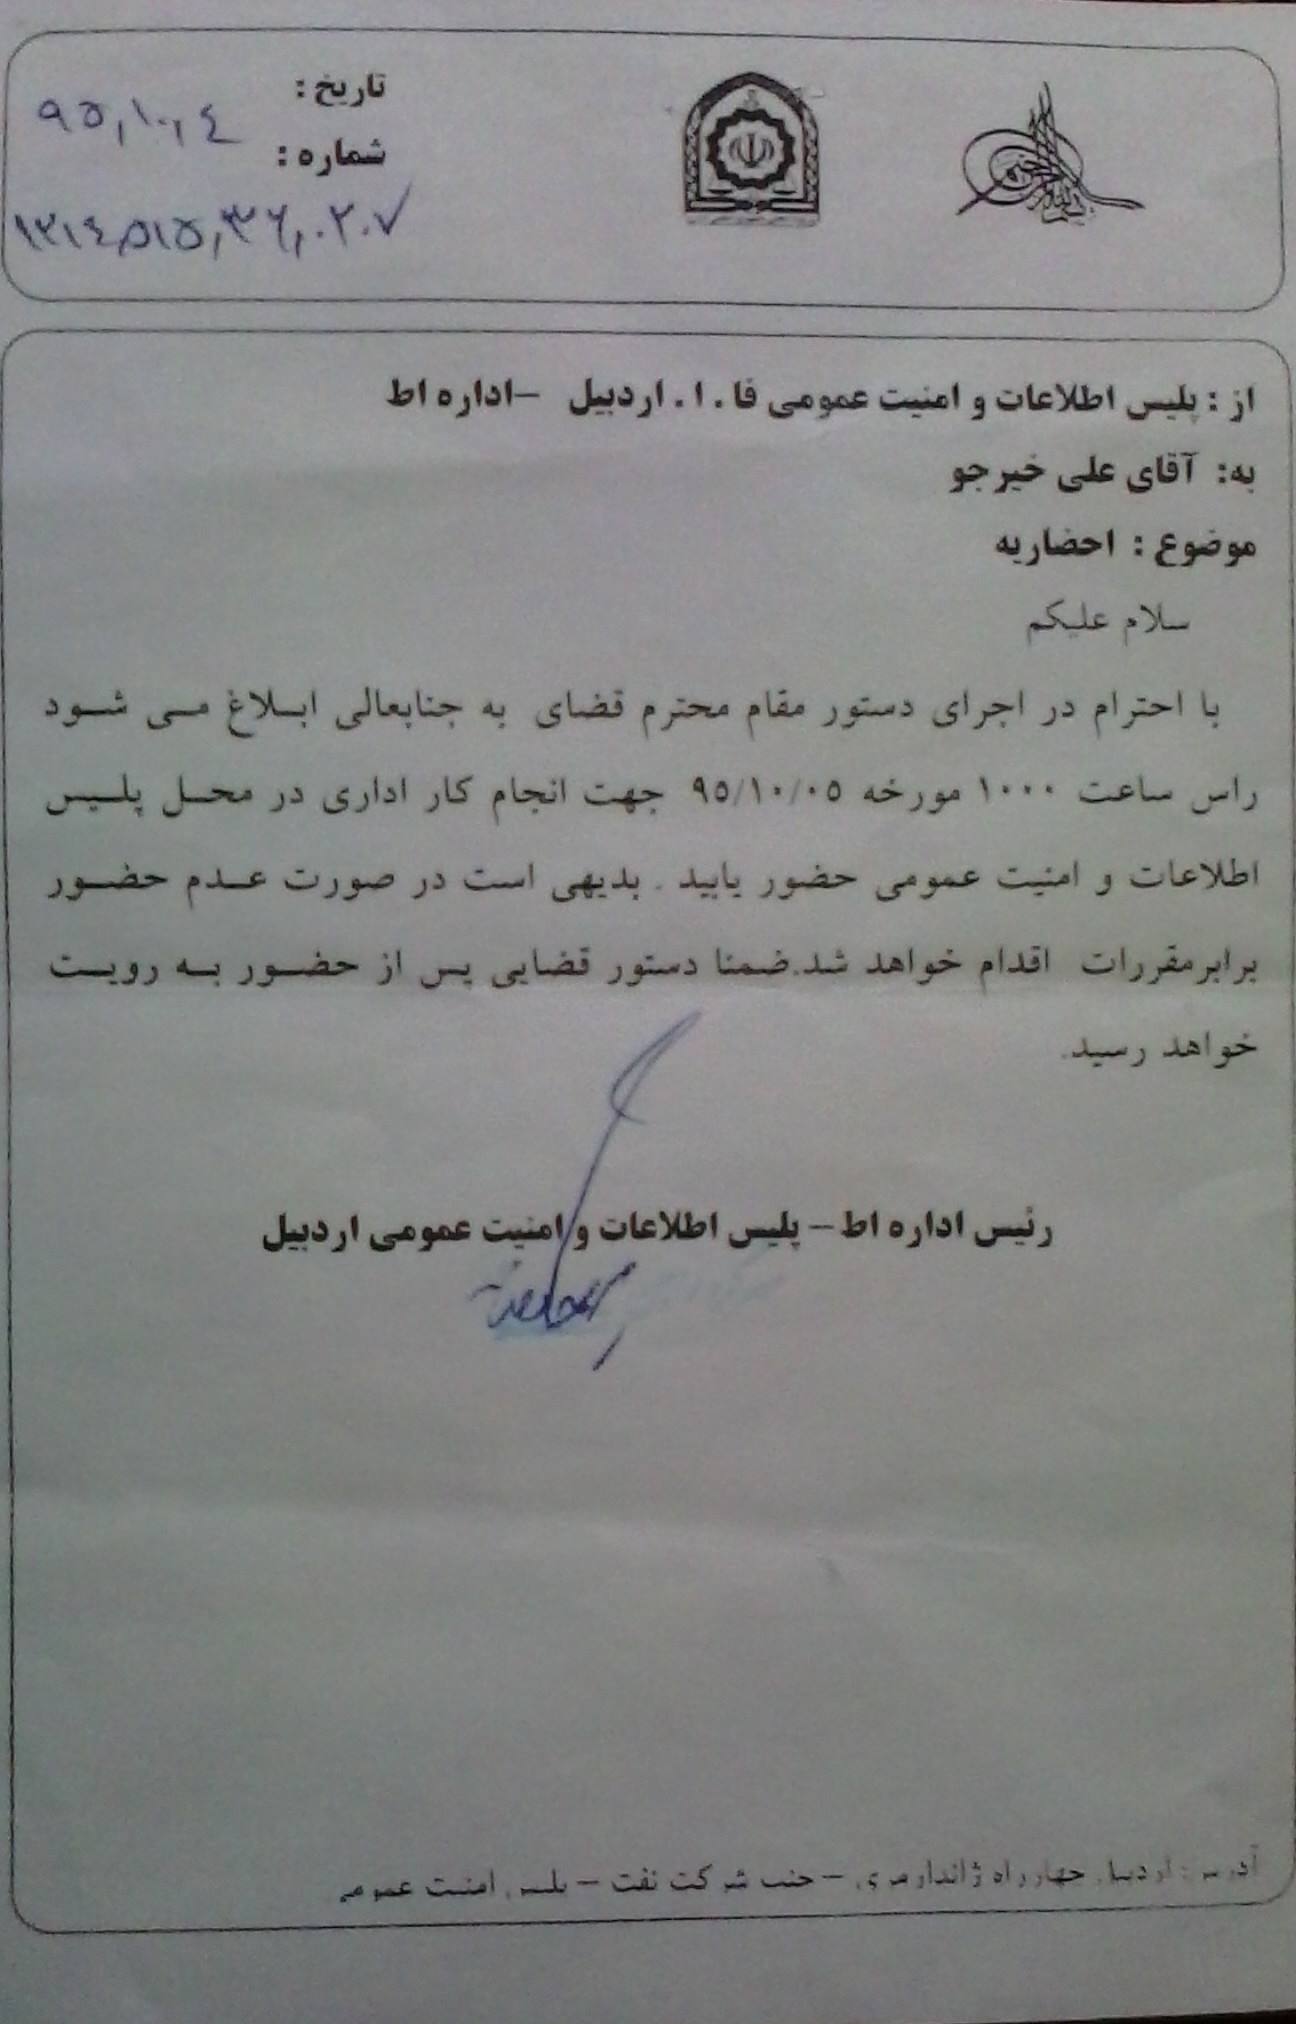 تاریخ :
۹۵،۱۰،۴
شماره :
از : پلیس اطلاعات و امنیت عمومی فا . ا . اردبیل -اداره اط
به: آقای علی خیرجو
موضوع : احضاریه
سلام علیکم
با احترام در اجرای دستور مقام محترم قضای به جنابعالی ابلاغ می شود
راس ساعت ۱۰۰۰ مورخه ۹۵/۱۰/۰۵ جهت انجام کار اداری در محل پلیس
اطلاعات و امنیت عمومی حضور یابید . بدیهی است در صورت عدم حضور
برابرمقررات اقدام خواهد شد.ضمنا دستور قضایی پس از حضور به رویت
خواهد رسید.
رئیس اداره اط – پلیس اطلاعات و امنیت عمومی اردبیل
آدرس : اردبیل چهارراه ژاندارمری – جنب شرکت نفت – پلیس امنیت عمومی